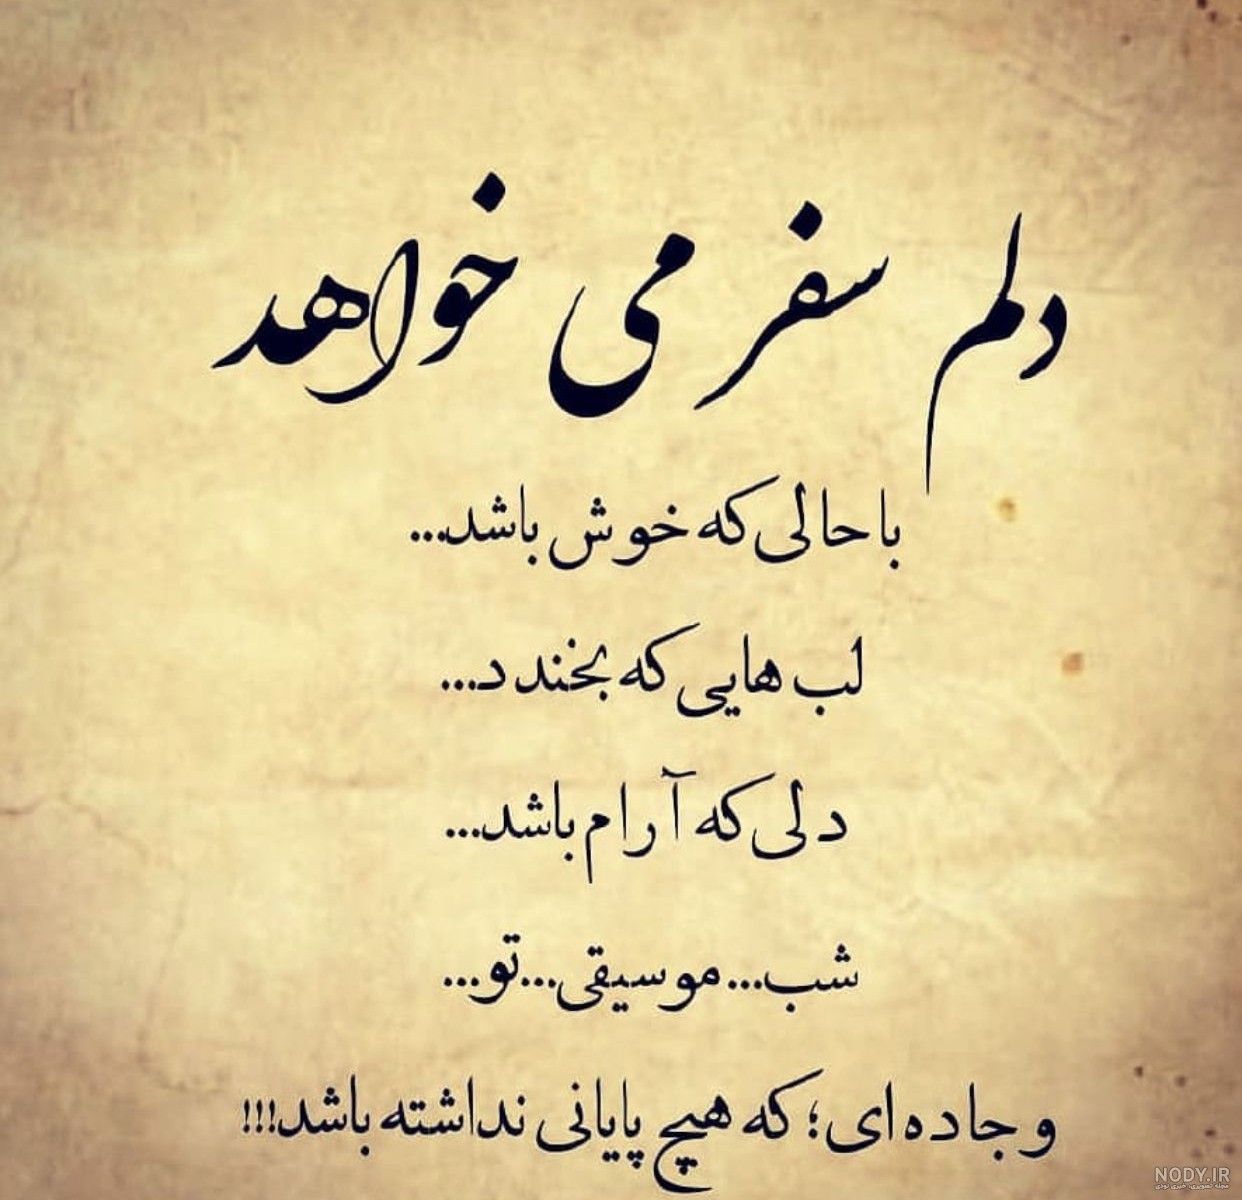 دلم سفر می خواهد
با حالی که خوش باشد...
لب هایی که بخندد...
دلی که آرام باشد...
شب...موسیقی...تو...
و جاده ای؛ که هیچ پایانی نداشته باشد!!!
NODY.IR
مجله تصویری، خبری نودی